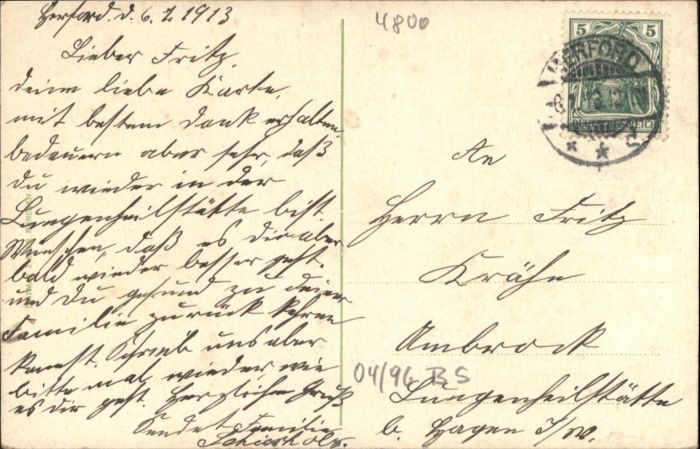 Herford. d. 6.1.1913
Lieber Fritz,
deine liebe Karte,
mit bestem Dank erhalten,
bedauern aber sehr, daß
du wieder in der
Lungenheilstätte bist.
Wünschen, daß es dir aber
bald wieder besser geht.
und du gesund zu deiner
Familie zurück kehren
kannst. Schreib uns aber
bitte mal wieder wie
es dir geht. Herzlichen Gruß
sendet Familie
4800
5 5
HERFORD
DEUTSCHES REICH
An
Herrn Fritz
Krähe
Ambrock
Lungenheilstätte
b. Hagen i/W.
04/96 BS